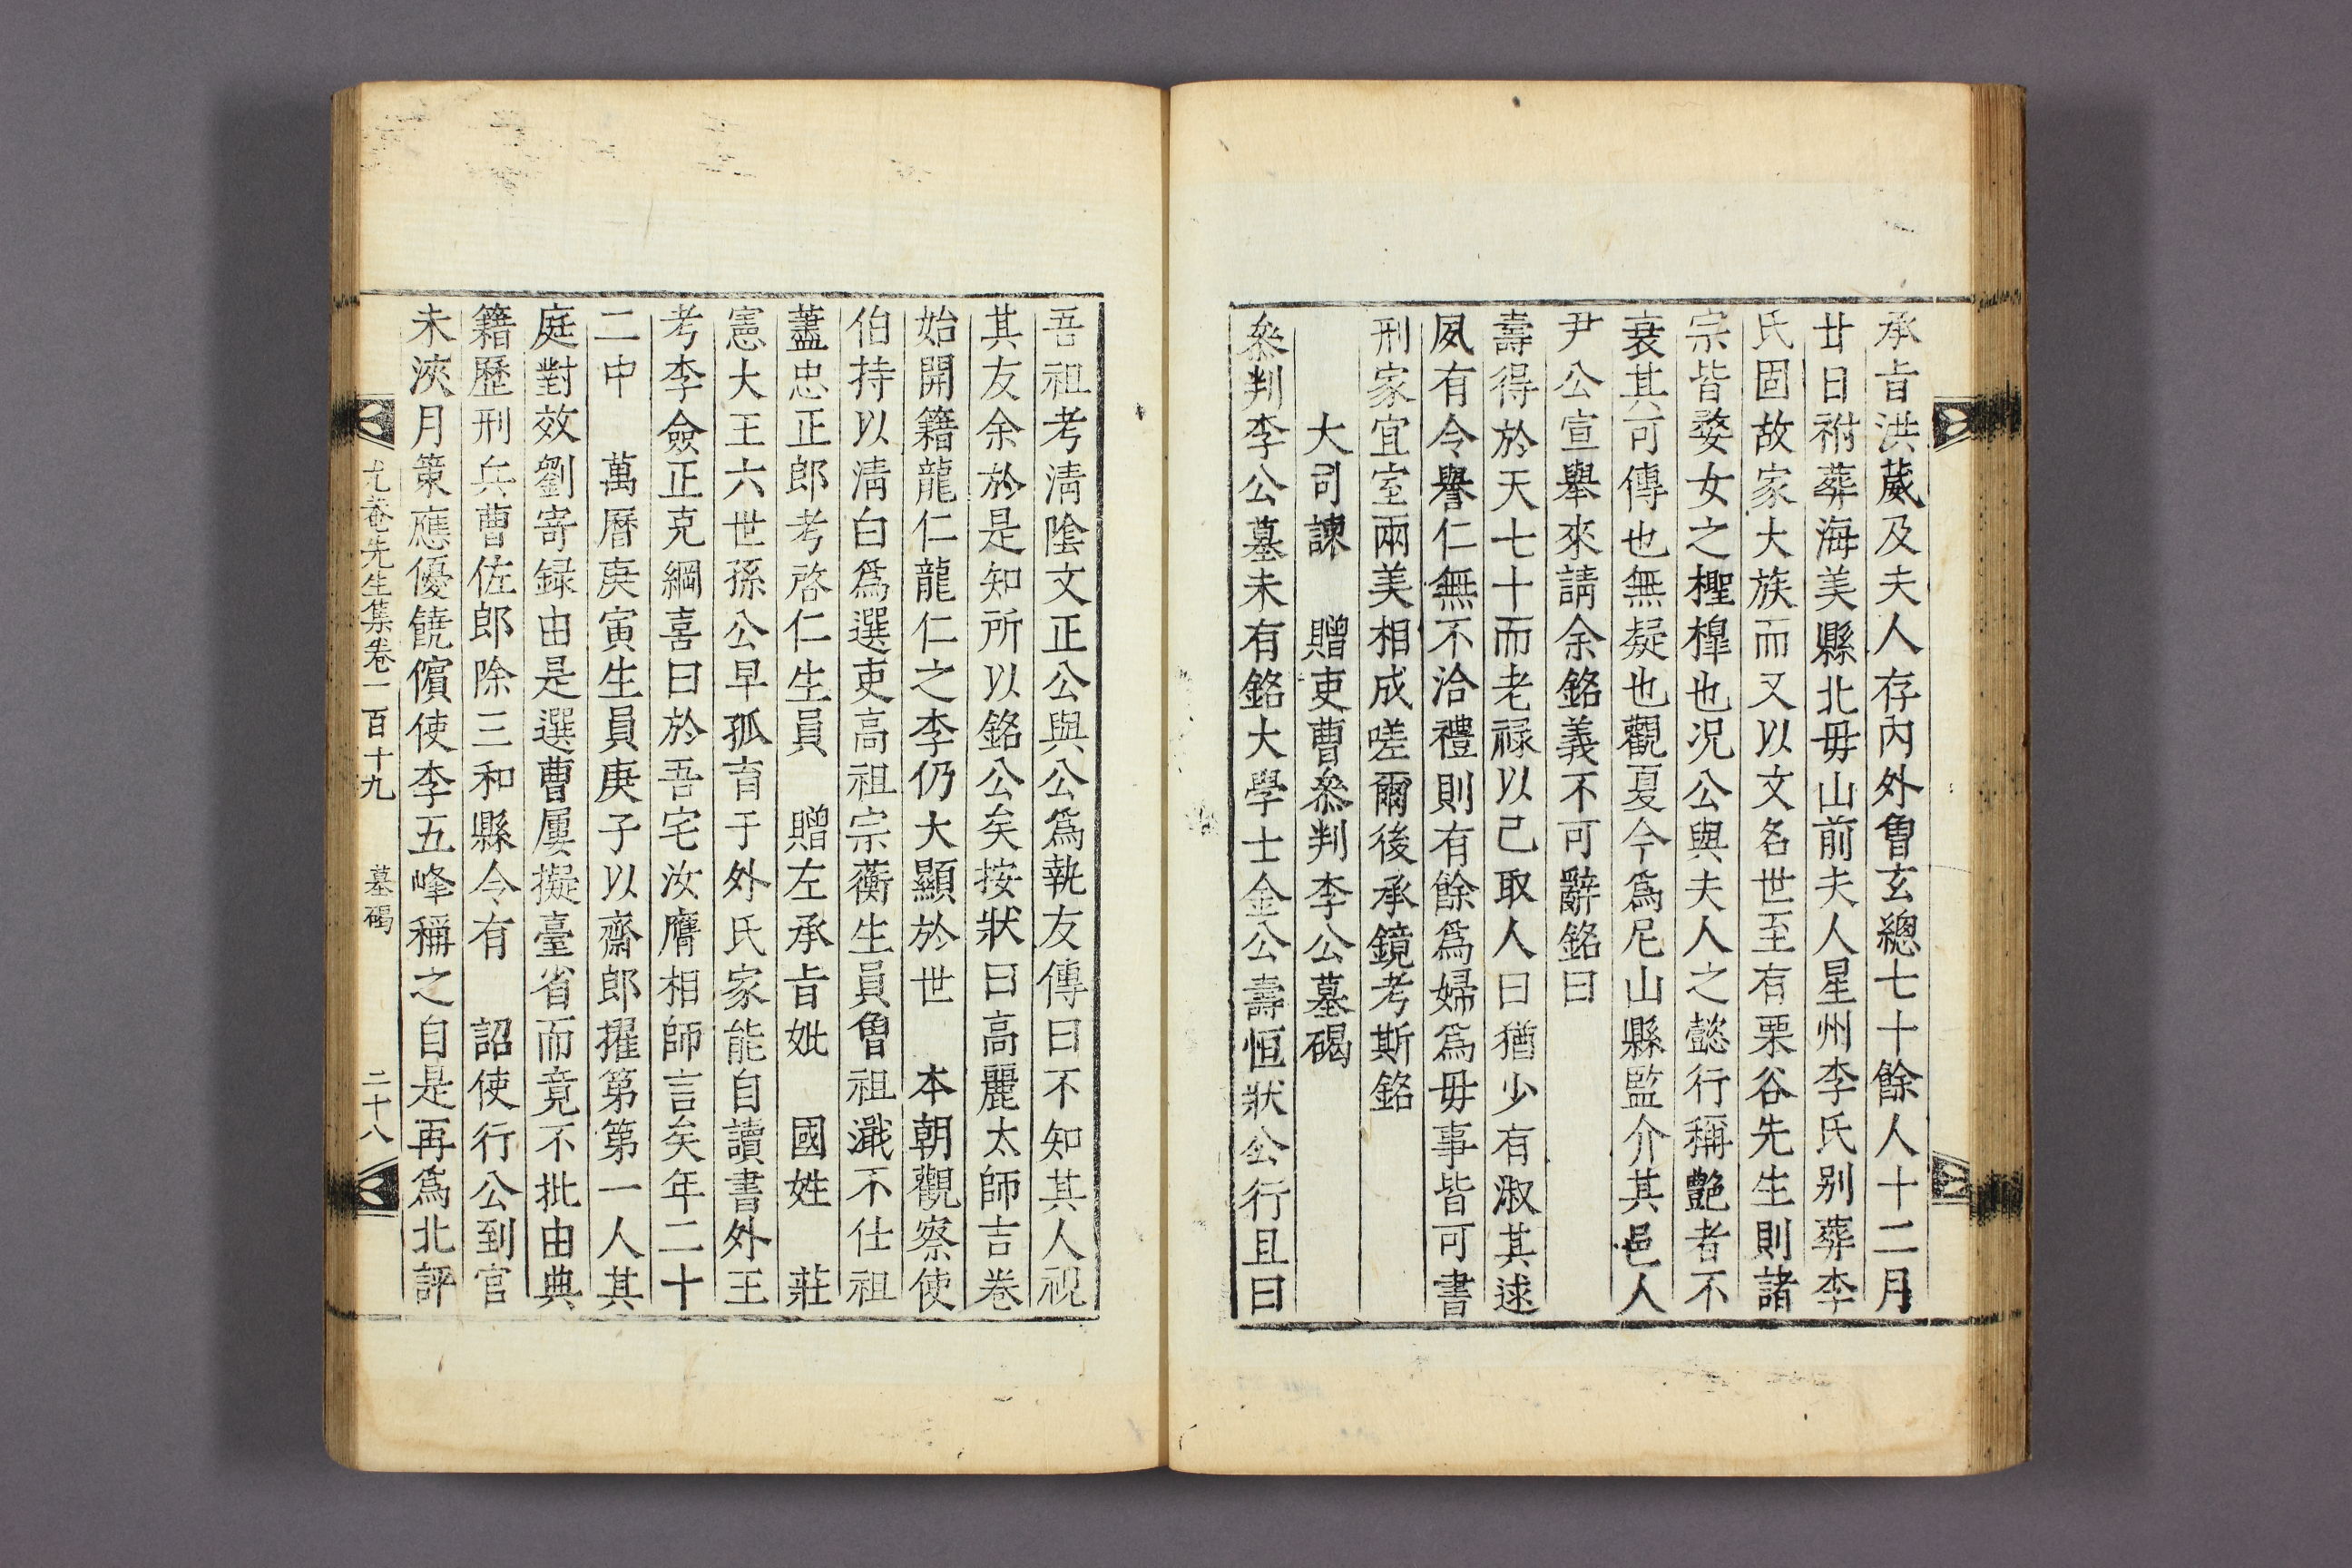 承旨洪葳及夫人存內外曾玄總七十餘人十二月
廿日祔葬海美縣北毋山前夫人星州李氏別葬李
氏固故家大族而又以文名世至有栗谷先生則諸
宗皆婺女之楻楻也况公與夫人之懿行稱艶者不
衰其可傳也無疑也觀夏今爲尼山縣監介其邑人
尹公宣擧來請余銘義不可辭銘曰
壽得於天七十而老祿以己取人曰猶少有淑其逑
夙有令譽仁無不洽禮則有餘爲婦爲毋事皆可書
刑家宜室兩美相成嗟爾後承鏡考斯銘
大司諫　贈吏曹叅判李公墓碣
叅判李公墓未有銘大學士金公壽恒狀公行且曰
吾祖考淸陰文正公與公爲執友傳曰不知其人視
其友余於是知所以銘公矣按狀曰高麗太師吉卷
始開籍龍仁龍仁之李仍大顯於世　本朝觀察使
伯持以淸白爲選吏高祖宗蘅生員曾祖濈不仕祖
藎忠正郎考啓仁生員　贈左承旨妣　國姓　莊
憲大王六世孫公早孤育于外氏家能自讀書外王
考李僉正克綱喜曰於吾宅汝膺相師言矣年二十
二中　萬曆庚寅生員庚子以齋郎擢第第一人其
庭對效劉寄錄由是選曹屢擬臺省而竟不批由典
籍歷刑兵曹佐郎除三和縣令有　詔使行公到官
未浹月策應優饒儐使李五峰稱之自是再爲北評
尤菴先生集卷一百十九　墓碣　二十八